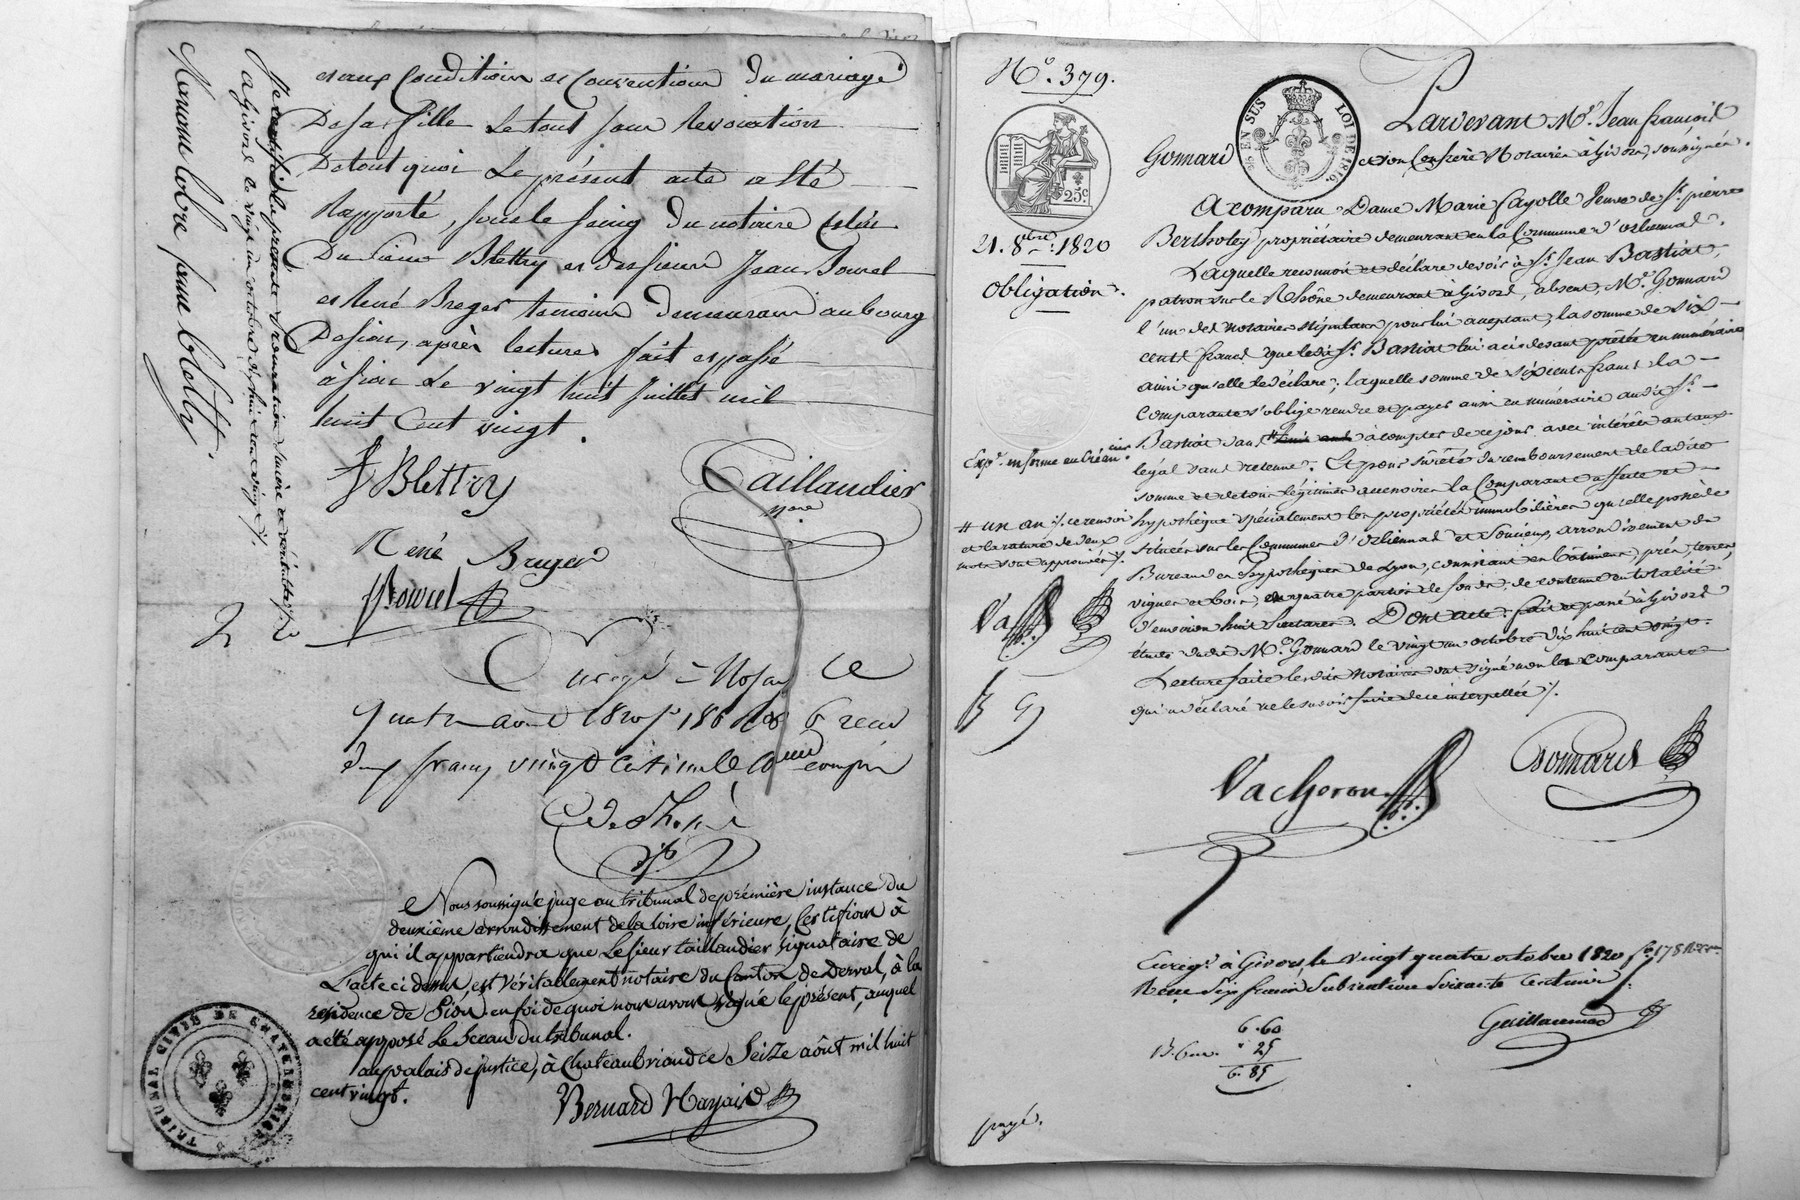 et aux Conditions et Conventions du mariage
De sa fille Le tout sans Revocation
De tout quoi Le présent acte a été
Rapporté, sous le seing du notaire
Du sieur Blettry et des sieurs Jean Bourel
et René Breger temoins demeurant au bourg
De sion, après lecture fait et passé
à sion Le vingt huit Juillet mil
huit Cent vingt.
Blettry
Taillandier
nre
René Breger
Bourel
Enregé à Nozay Le
quatre aout 1820 fo 186 reçu
deux francs vingt centimes compris
Nous soussigné juge au tribunal de première instance du
deuxième arrondissement de la loire inférieure, Certifions à
qui il appartiendra que Le sieur taillandier signataire de
L'acte ci dessus, est véritablement notaire du Canton de Derval, à la
residence de Sion. en foi de quoi nous avons signé le présent, auquel
a été apposé Le Sceau du tribunal.
au palais de justice, à Chateaubriand ce Seize aôut mil huit
cent vingt.
Bernard
TRIBUNAL CIVIL DE CHATEAUBRIANT
Je certifie la présente procuration sincère et véritable
à Givors le vingt un octobre dix huit cent vingt
fame bletry.
No. 379.
25c
21. 8bre. 1820
Obligation.
25 EN SUS LOI DE 1816.
Pardevant Me. Jean françois
Gomard et son Confrère Notaires à Givors, soussignés.
A comparu Dame Marie fayolle Veuve de Sr. pierre
Bertholey propriétaire demeurant en la Commune d'orliennas.
Laquelle reconnoit et déclare devoir à Sr. Jean Bastiat,
patron sur le Rhône demeurant à Givors, absent, Me. Gomard
l'un des notaires stipulant pour lui acceptant, la somme de six
cents francs que ledit Sr. Bastiat lui a ci devant prêtée en numéraire
ainsi qu'elle le déclare; laquelle somme de six cents francs la
Comparante s'oblige rendre et payer aussi en numéraire audit Sr.
Bastiat dans # à compter de ce jour avec intérêts au taux
légal sans retenue. Et pour sûreté du remboursement de ladite
somme et de tous légitimes accessoires la Comparante affecte et
hypothèque spécialement les propriétés immobilières qu'elle possède
situées sur les Communes d'Orliennas et Soucieu, arrondissement du
Bureau des hypothèques de Lyon, consistant en bâtiments, prés, terres
vignes et bois, en quatre parties de fonds, de contenue en totalité
d'environ huit hectares. Dont acte: fait et passé à Givors
étude dudit Me. Gomard le vingt un octobre dix huit cent vingt.
Lecture faite lesdits notaires ont signé non la comparante
qui a déclaré ne le savoir faire de ce interpellée.
Expé. en forme au Créancier.
# un an ce renvoi
et la rature de deux
mots sont approuvés
Va
G
Vacheron
Gomard
Enregé. à Givors, le vingt quatre octobre 1820 fo. 178
Reçu Six francs Subvention Soixante Centimes
Guillaumand
6.60
25
6.85
payé.